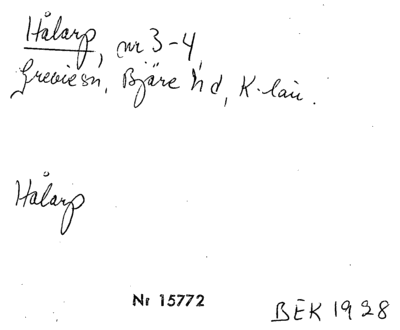 Hålarp, nr 3-4,
Grevie sn, Bjäre hd, K. län.
Hålarp
Nr 15772
BEK 1928